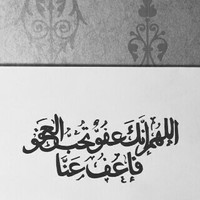 اللهم إنك عفو تحب العفو
فاعف عنا